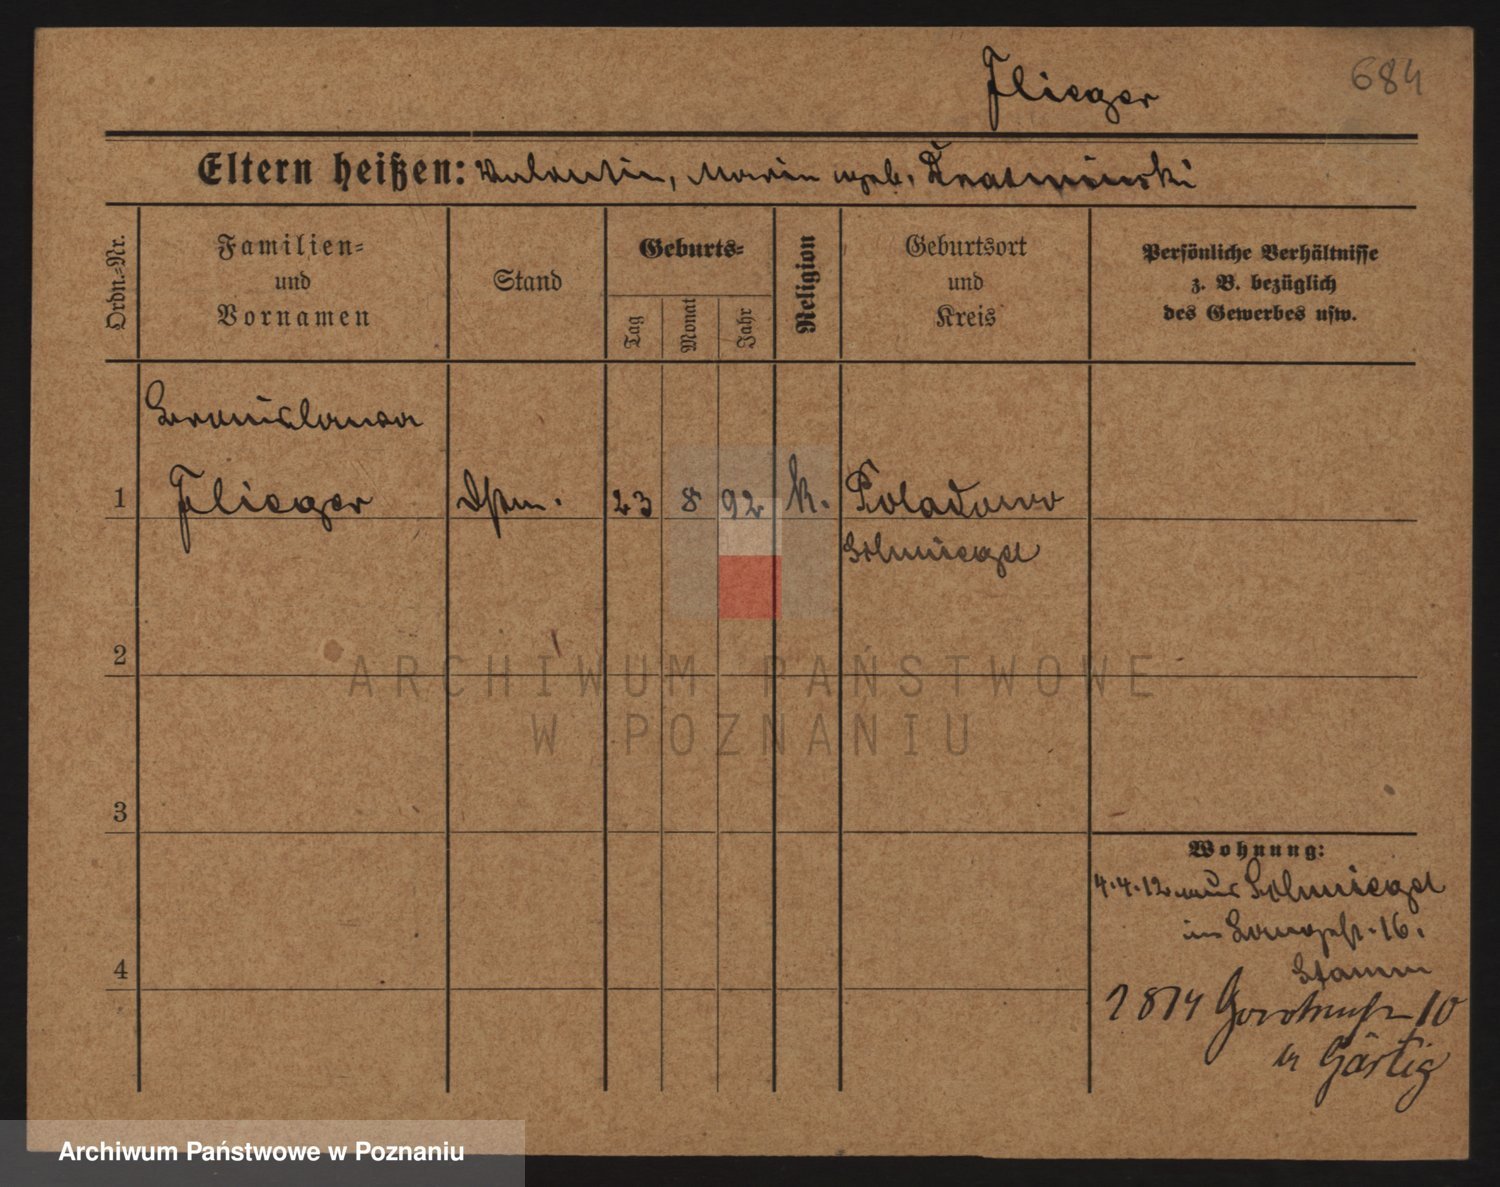 Flieger
684
Eltern heißen: Valentin, Maria geb. Kratminski
Ordn.=Nr.
Familien=
und
Vornamen
Stand
Geburts=
Tag
Monat
Jahr
Religion
Geburtsort
und
Kreis
Persönliche Verhältnisse
z. B. bezüglich
des Gewerbes usw.
Bronislawa
1 Flieger Dstm. 23 8 92 k. Poladowo
Schmiegel
2
ARCHIWUM PAŃSTWOWE
W POZNANIU
3
Wohnung:
4.4.12 aus Schmiegel
in Langestr. 16.
4
Stamm
1814 10
Gärtig
Archiwum Państwowe w Poznaniu